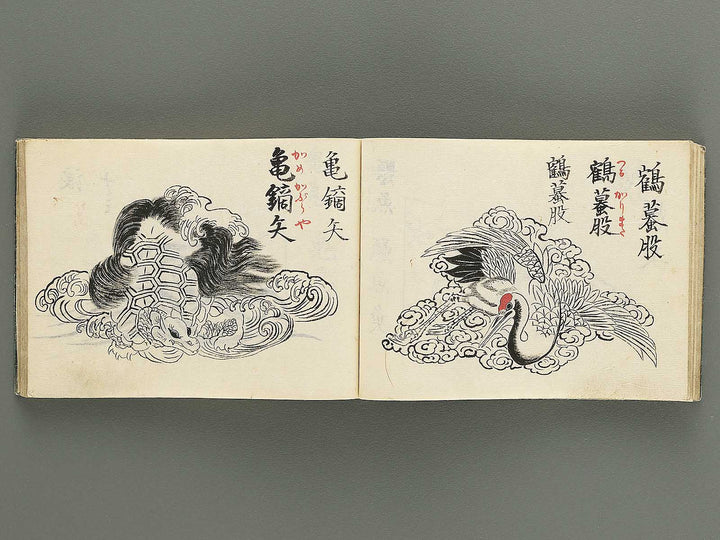 鶴蟇股
鶴蟇股
つる かりまた
鶴蟇股
亀鏑矢
かめ かぶらや
亀鏑矢